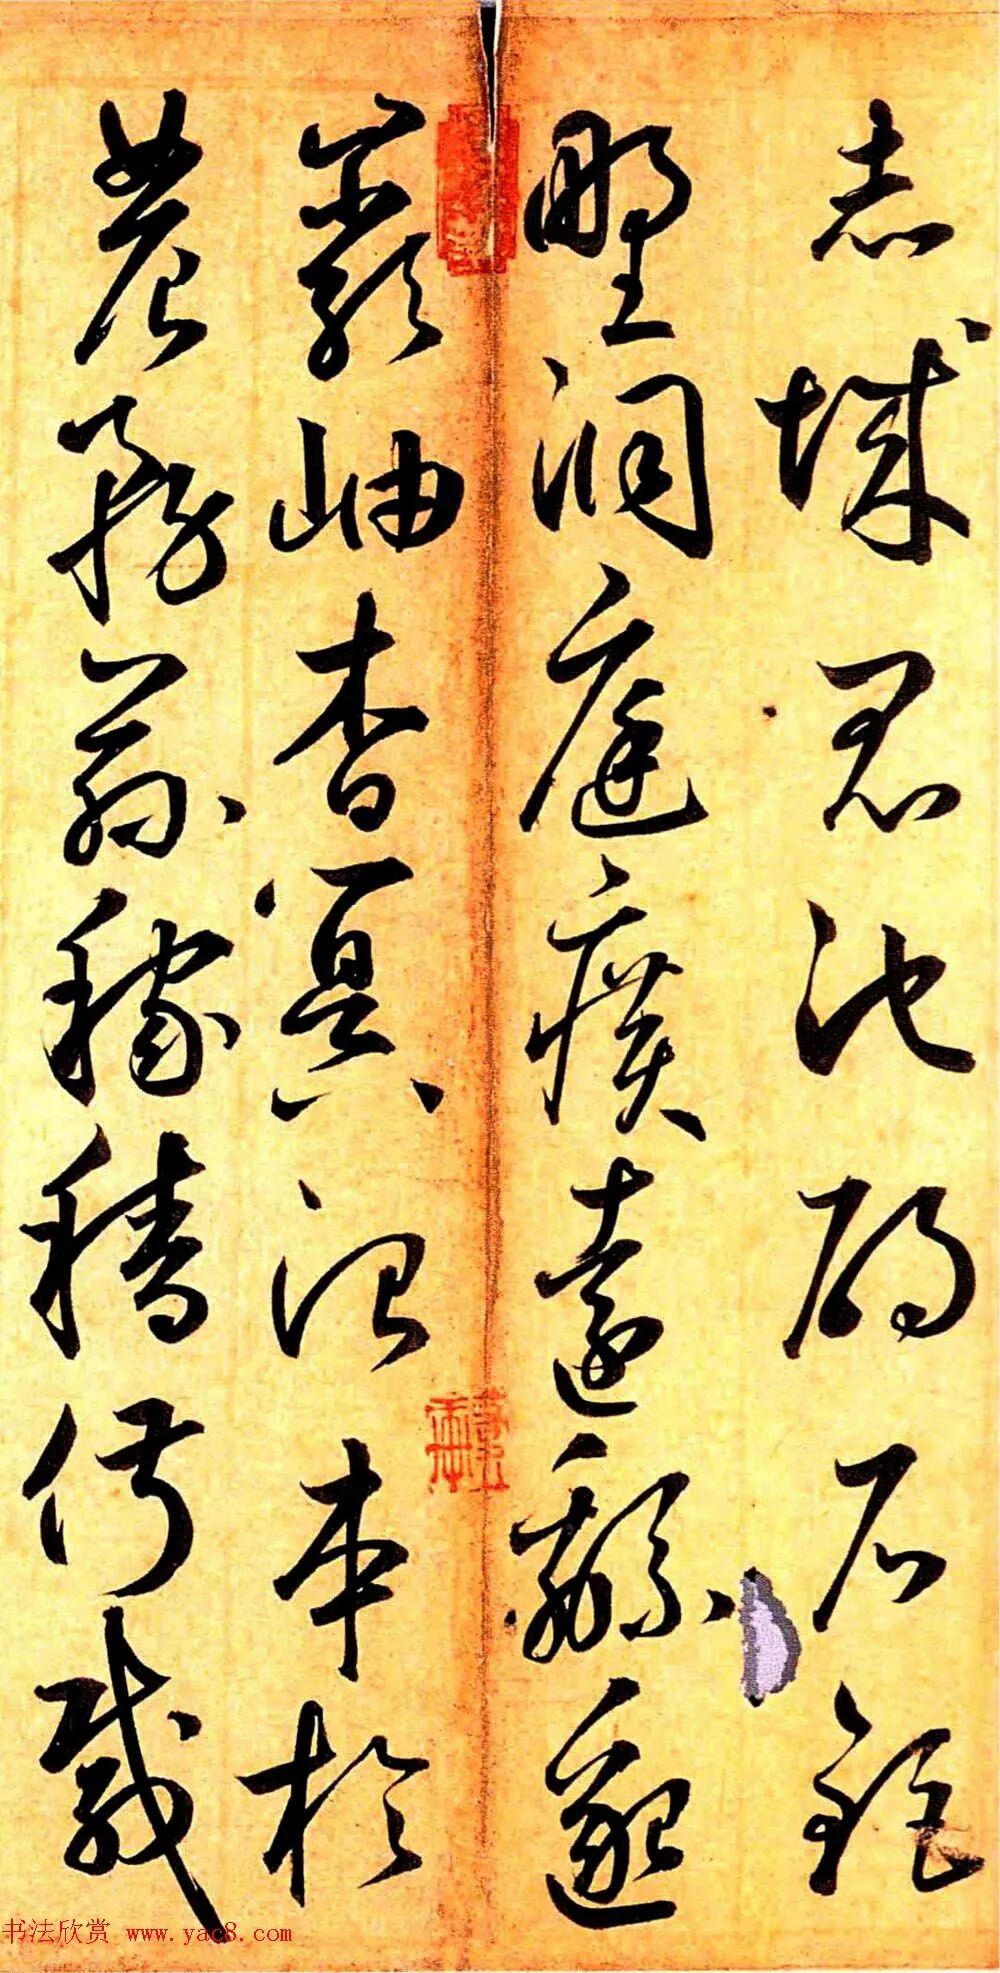 赤城昆池碣石鉅
野洞庭曠遠緜邈
巖岫杳冥治本於
農務茲稼穡俶載
书法欣赏 www.yac8.com